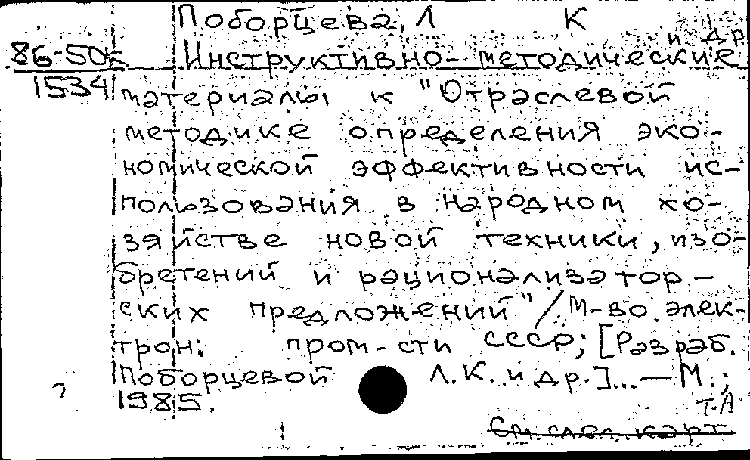 Поборцева, Л К
и др
86-50
1534
Инструктивно-методические
материалы к "Отраслевой
методике определения эко-
номической эффективности ис-
пользования в народном хо-
зяйстве новой техники, изо-
бретений и рационализатор-
ских предложений"/М-во элек-
трон. пром-сти СССР; [Разраб.
Поборцевой Л.К. и др.]...—М.:
1985.
См. след. карт